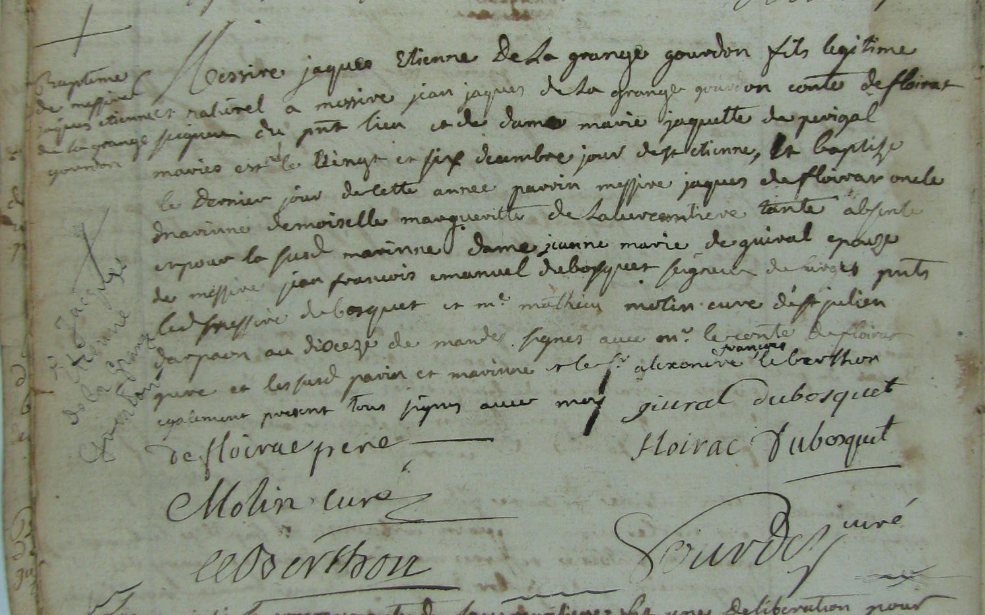 Baptême
de messire
jaques etienne
de la grange
gourdon
Messire jaques Etienne De La grange gourdon fils legitime
et naturel a messire jean jaques de La grange gourdon conte de floirac
seigneur du pnt lieu et de dame marie jaquette de perigal
mariés est né le Vingt et six decembre jour de st etienne, et baptizé
le dernier jour de cette année parrin messire jaques de floirac oncle
marinne demoiselle margueritte de tante absente
et pour la susd marinne dame jeanne marie de guiral epouse
de messire jean francois emanuel dubosquet seigneur de pnts
led messire dubosquet et mr. mathieu molin curé de st julien
au dioceze de mande signés avec mr. le conte de floirac
pere et les susd parin et marinne et le sr. alexandre françois leberthon
egalement present tous signés avec moy
giural dubosquet
de floirac pere
floirac Dubosquet
Molin curé
leBerthon
curé
jaques
etienne
de la grange
une deliberation pour